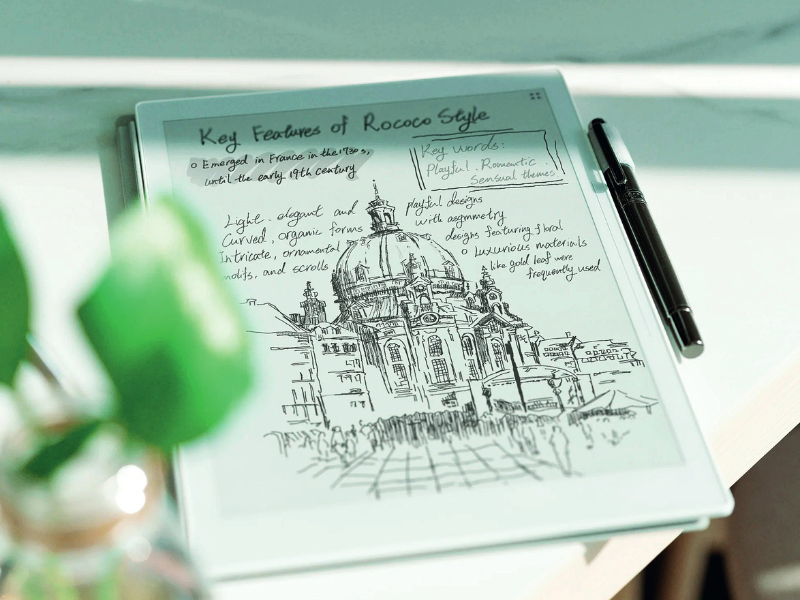 Key Features of Rococo Style
o Emerged in France in the 1730s,
until the early 19th century
Key words:
Playful. Romantic.
Sensual themes
Light - elegant and
Curved, organic forms
Intricate, ornamental
motifs, and scrolls
playful designs
with asymmetry
designs featuring floral
o Luxurious materials
like gold leaf were
frequently used